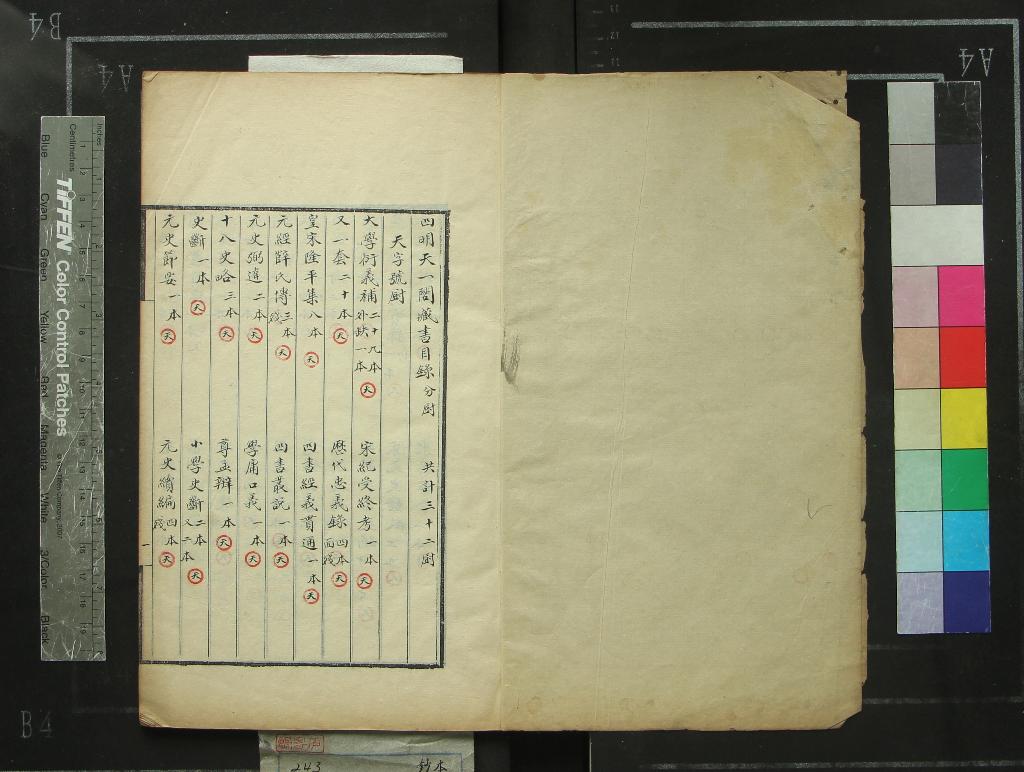 四明天一閣藏書目錄分廚 共計三十二廚
天字號廚
大學衍義補二十九本外缺一本 天 宋紀受終考一本 天
又一套二十本 天 歷代忠義錄四本 天
皇宋隆平集八本 天 四書經義貫通一本 天
元經薛氏傳三本殘 天 四書叢説一本 天
元史弼違二本 天 學庸口義一本 天
十八史略三本 天 尊孟辯一本 天
史斷一本 天 小學史斷二本又二本 天
元史節要一本 天 元史續編四本殘 天
一
B4
A4
A4
B4
Inches
Centimetres
TIFFEN Color Control Patches
© The Tiffen Company, 2007
Blue Cyan Green Yellow Red Magenta White 3/Color Black
243 鈔本